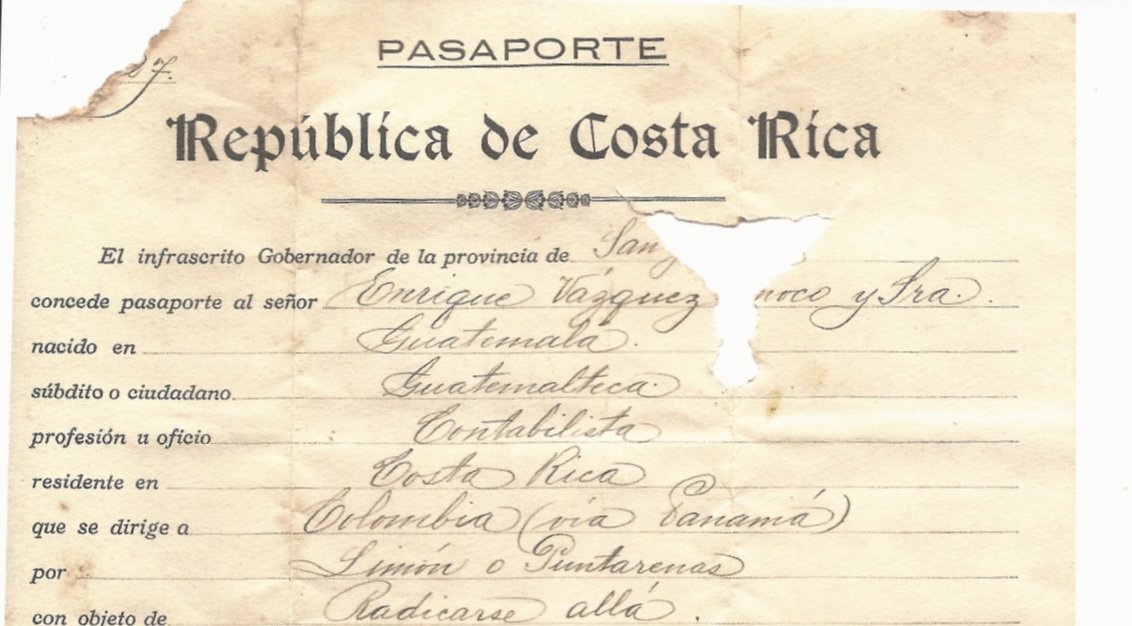 27.
PASAPORTE
República de Costa Rica
El infrascrito Gobernador de la provincia de San
concede pasaporte al señor Enrique Vázquez noco y Sra.
nacido en Guatemala.
súbdito o ciudadano Guatemalteca.
profesión u oficio Contabilista
residente en Costa Rica
que se dirige a Colombia (vía Panamá)
por Limón o Puntarenas
con objeto de Radicarse allá.